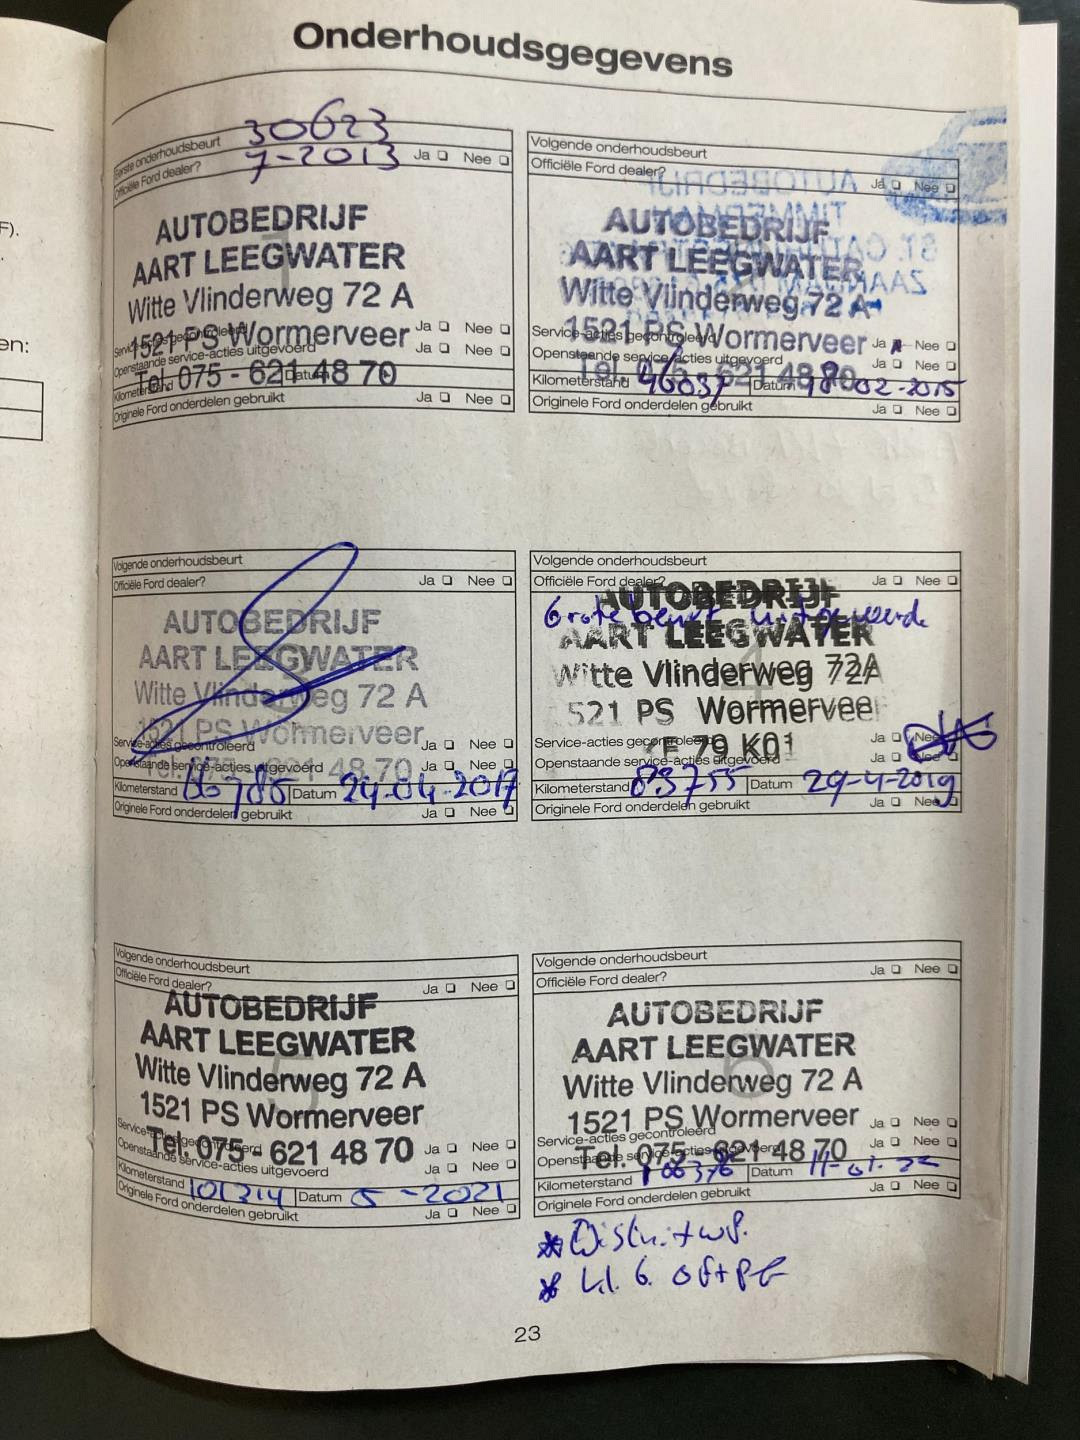 F).
en:
Onderhoudsgegevens
Eerste onderhoudsbeurt 30623
Officiële Ford dealer? 7-2013 Ja Nee
AUTOBEDRIJF
AART LEEGWATER
Witte Vlinderweg 72 A
1521 PS Wormerveer
Tel. 075 - 621 48 70
Service-acties gecontroleerd Ja Nee
Openstaande service-acties uitgevoerd Ja Nee
Kilometerstand Datum
Originele Ford onderdelen gebruikt Ja Nee
Volgende onderhoudsbeurt
Officiële Ford dealer? Ja Nee
AUTOBEDRIJF
AUTOBEDRIJF
AART LEEGWATER
Witte Vlinderweg 72 A
1521 PS Wormerveer
Tel. 075 - 621 48 70
Service-acties gecontroleerd Ja Nee
Openstaande service-acties uitgevoerd Ja Nee
Kilometerstand 46037 Datum 18-02-2015
Originele Ford onderdelen gebruikt Ja Nee
Volgende onderhoudsbeurt
Officiële Ford dealer? Ja Nee
AUTOBEDRIJF
AART LEEGWATER
Witte Vlinderweg 72 A
1521 PS Wormerveer
Tel. 075 - 621 48 70
Service-acties gecontroleerd Ja Nee
Openstaande service-acties uitgevoerd Ja Nee
Kilometerstand 66785 Datum 24-04-2017
Originele Ford onderdelen gebruikt Ja Nee
Volgende onderhoudsbeurt
Officiële Ford dealer? Ja Nee
AUTOBEDRIJF
Grote beurt uitgevoerd
AART LEEGWATER
Witte Vlinderweg 72A
521 PS Wormerveer
KE 79 K01
4
Service-acties gecontroleerd Ja Nee
Openstaande service-acties uitgevoerd Ja Nee
Kilometerstand 83755 Datum 29-4-2019
Originele Ford onderdelen gebruikt Ja Nee
Volgende onderhoudsbeurt
Officiële Ford dealer? Ja Nee
AUTOBEDRIJF
AART LEEGWATER
Witte Vlinderweg 72 A
5
1521 PS Wormerveer
Tel. 075 - 621 48 70
Service-acties gecontroleerd Ja Nee
Openstaande service-acties uitgevoerd Ja Nee
Kilometerstand 101214 Datum 5-2021
Originele Ford onderdelen gebruikt Ja Nee
Volgende onderhoudsbeurt
Officiële Ford dealer? Ja Nee
AUTOBEDRIJF
AART LEEGWATER
Witte Vlinderweg 72 A
6
1521 PS Wormerveer
Tel. 075 - 621 48 70
Service-acties gecontroleerd Ja Nee
Openstaande service-acties uitgevoerd Ja Nee
Kilometerstand Datum
Originele Ford onderdelen gebruikt Ja Nee
23